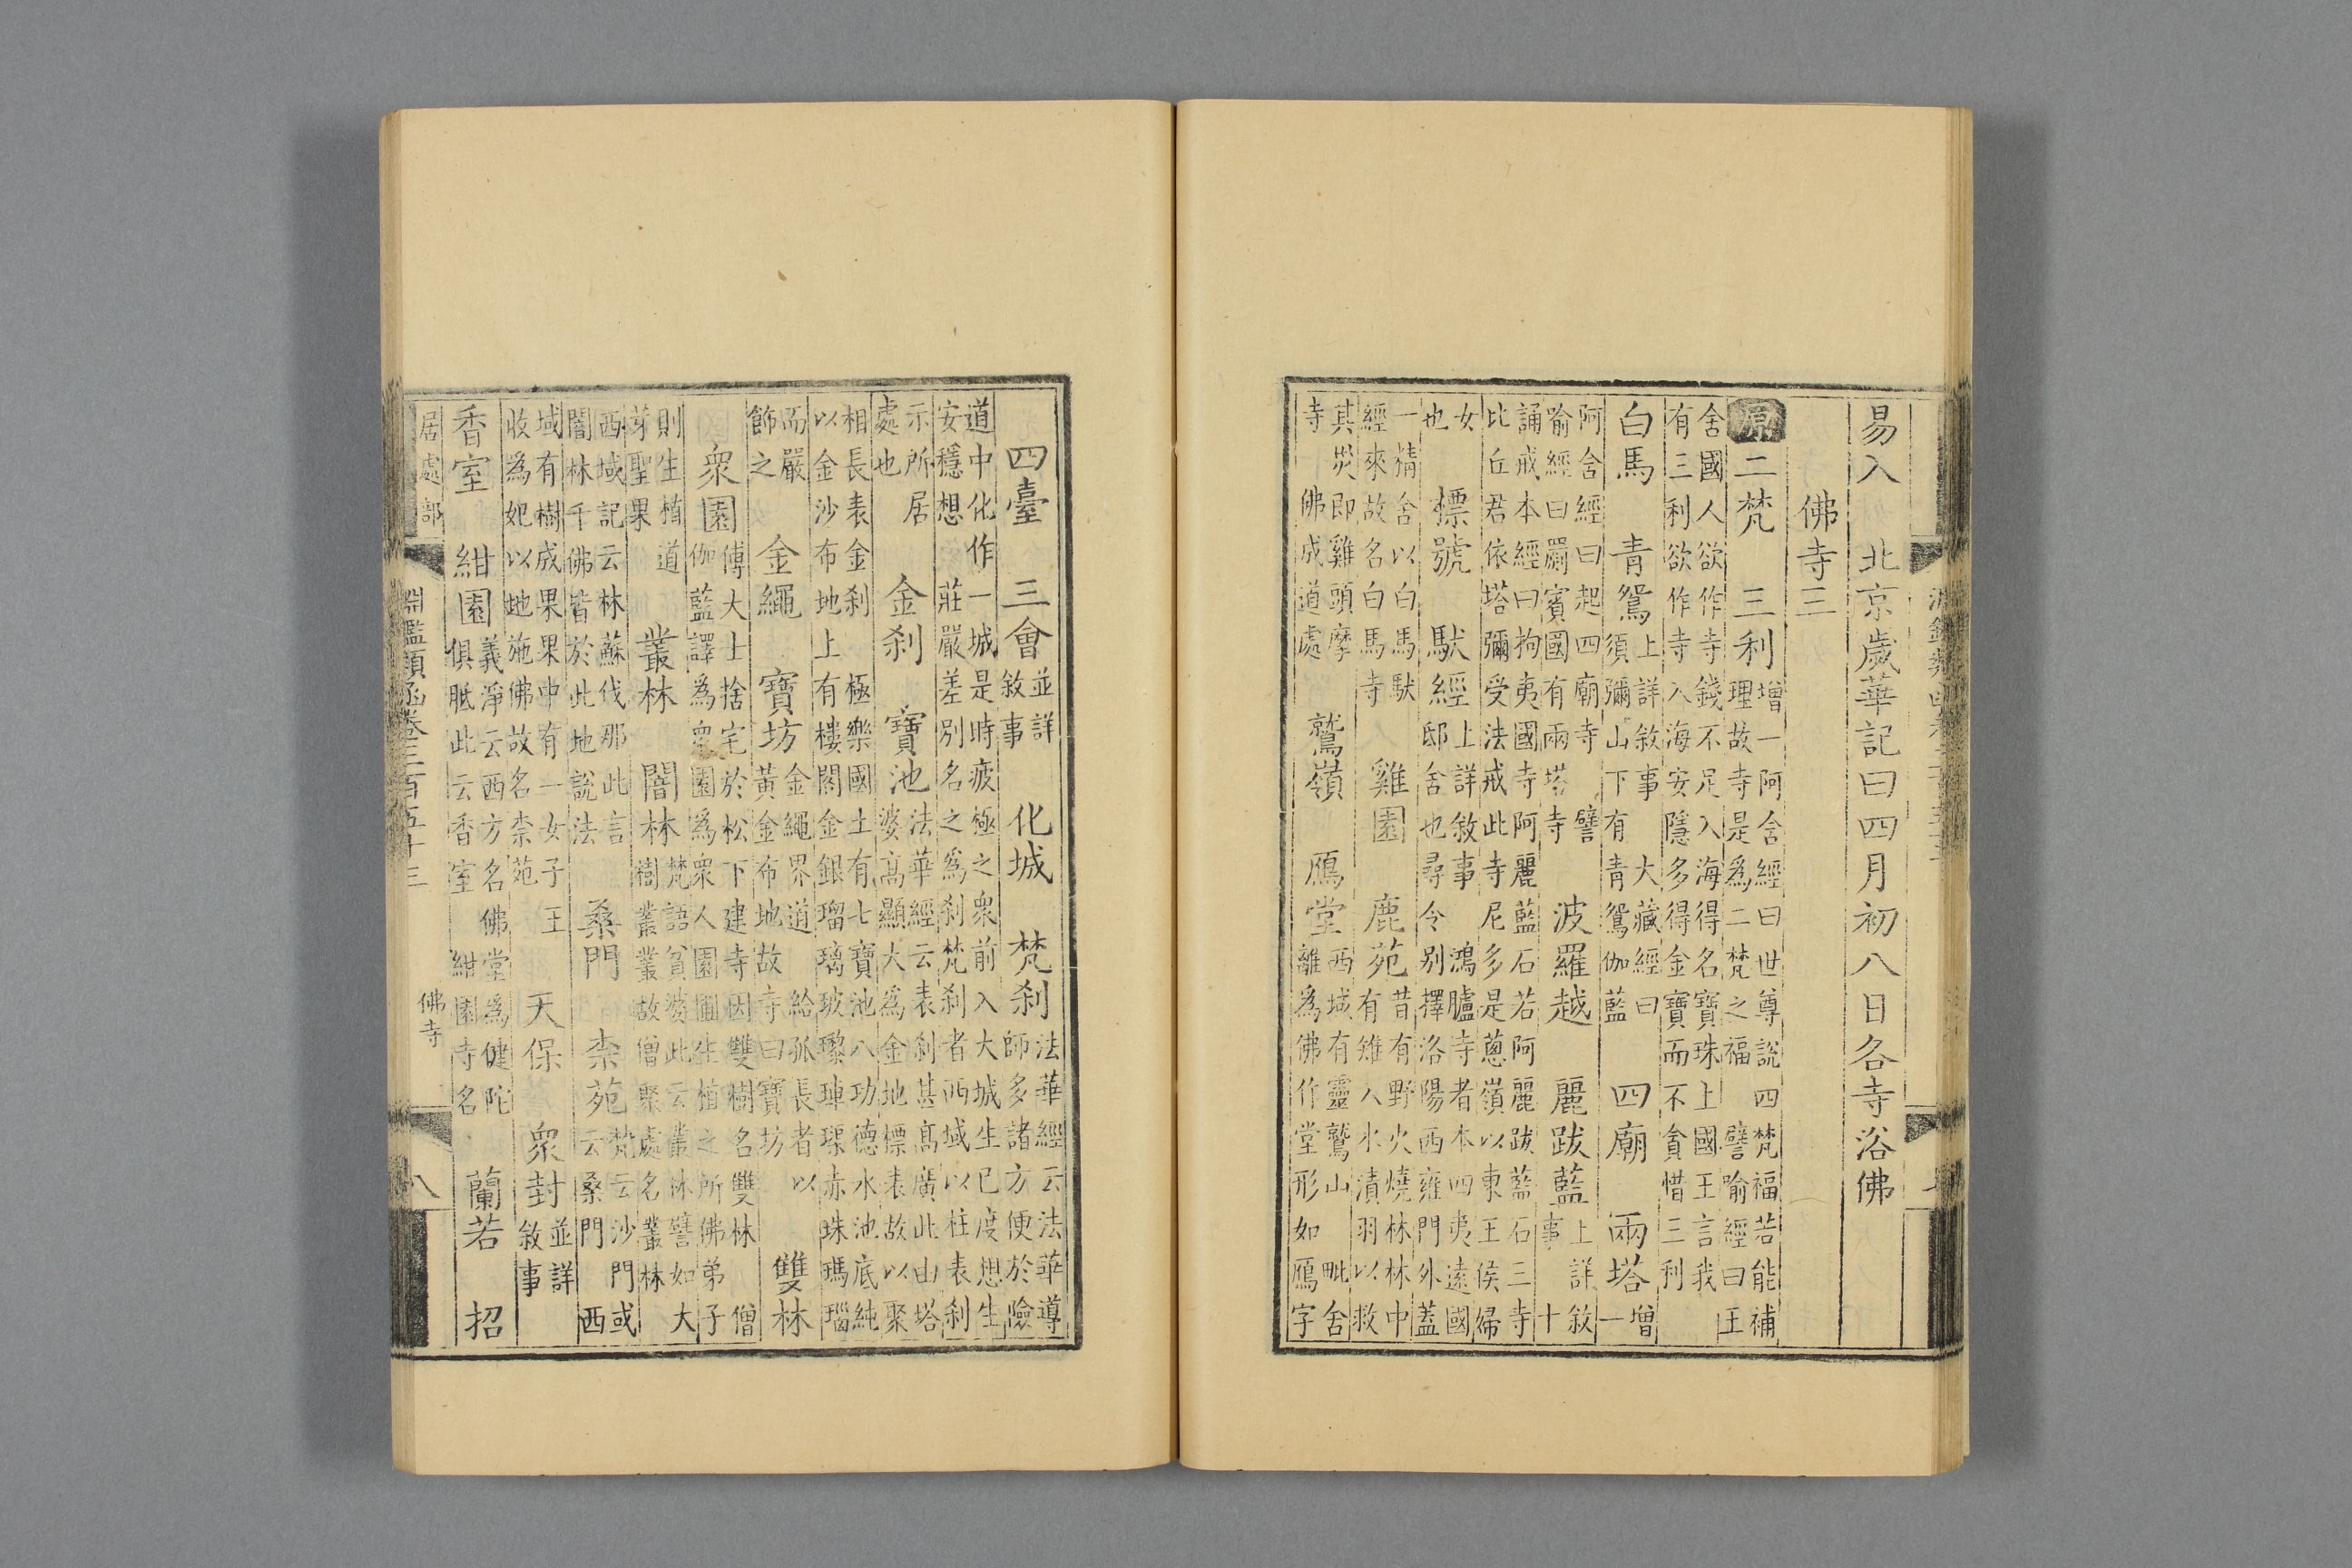 易入　北京歲華記曰四月初八日各寺浴佛
佛寺三
原二梵　三利
增一阿含經曰世尊說四梵福若能補
理故寺是為二梵之福　譬喻經曰王
舍國人欲作寺錢不足入海得名寶珠上國王言我
有三利欲作寺入海安隱多得金寶而不貪惜三利
白馬　青鴛
上詳敘事　大藏經曰
須彌山下有青鴛伽藍
四廟　兩塔
增
一
阿含經曰起四廟寺　譬
喻經曰罽賓國有兩塔寺
波羅越　麗跋藍
上詳敘
事　十
誦戒本經曰拘夷國寺阿麗藍石若阿麗跋藍石三寺
比丘君依塔彌受法戒此寺尼多是蔥嶺以東王侯婦
女
也
標號　馱經
上詳敘事　鴻臚寺者本四夷遠國
邸舍也尋令別擇洛陽西雍門外蓋
一精舍以白馬馱
經來故名白馬寺
雞園　鹿苑
昔有野火燒林林中
有雉入水漬羽以救
其災即雞頭摩
寺　佛成道處
鷲嶺　鴈堂
西域有靈鷲山　毗舍
離為佛作堂形如鴈字
四臺　三會
並詳
敘事
化城　梵刹
法華經云法華導
師多諸方便於險
道中化作一城是時疲極之衆前入大城生已度想生
安穩想　莊嚴差別名之為刹梵刹者西域以柱表刹
示所居
處也
金刹　寶池
法華經云表刹甚高廣此由塔
婆高顯大為金地標表故以聚
相長表金刹　極樂國土有七寶池八功德水池底純
以金沙布地上有樓閣金銀瑠璃玻瓈硨磲赤珠瑪瑙
而嚴
飾之
金繩　寶坊
金繩界道　給孤長者以
黃金布地故寺曰寶坊
雙林
衆園
傅大士捨宅於松下建寺因雙樹名雙林　僧
伽藍譯為衆園為衆人園圃生植之所佛弟子
則生植道
芽聖果
叢林　闇林
梵語貧婆此云叢林譬如大
樹叢叢故僧聚處名叢林
西域記云林蘇伐那此言
闇林千佛皆於此地說法
桑門　柰苑
梵云沙門或
云桑門　西
域有樹成果果中有一女子王
收為妃以地施佛故名柰苑
天保　衆封
並詳
敘事
香室　紺園
義淨云西方名佛堂為健陀
俱胝此云香室　紺園寺名
蘭若　招
居處部
淵鑑類函卷三百五十三
佛寺
八